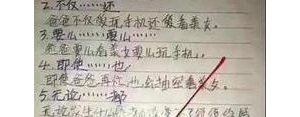 2.不仅……还
爸爸不仅爱玩手机还爱看美女。
3.要么……要么……
爸爸要么看美女要么玩手机。
4.即使……也
即使爸爸再忙,也会抽空看美女。
5.无论……都
无论